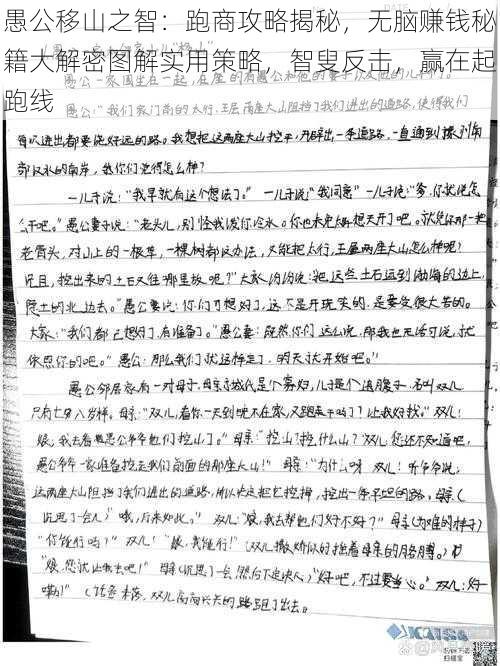 愚公移山之智：跑商攻略揭秘，无脑赚钱秘
籍大解密图解实用策略，智叟反击，赢在起
跑线
愚公一家围坐在一起，在座的有愚公和他的妻子以及他的儿子们。
愚公："我们家门前的太行、王屋两座大山阻挡了我们进出的道路，使得我们
每次进出都要绕好远的路。我想把这两座大山挖平，开辟出一条道路，一直通到豫州南
部汉水的南岸，我你们觉得怎么样？
一儿子说："我早就有这个想法了。" 一儿子说："我同意" 一儿子说："爹，你就说怎
么干吧。"愚公妻子说："老头儿，别怪我泼你冷水。你也未免太异想天开了吧。就凭你那一把
老骨头，对山上的一根草，一棵树都没办法，又能把太行、王屋两座大山怎么样呢？
况且，挖出来的土石又往哪里放呢？"大家纷纷说："把这些土石运到渤海的边上，
隐土的北边去。"愚公妻说：你们可想好了，这不是开玩笑的，是要受很大苦的。
大家："我们都已想好了，有准备了。"愚公妻：既然你们这么说，那我也无话可说，就
依照你的吧。"愚公：那么我们就这样定了，明天就开始吧。"
愚公邻居家有一对母子，母亲京城氏是个寡妇，儿子是个遗腹子，名叫双儿，
只有七、八岁样。母亲："双儿，看你一天到晚不在家，又跑去干吗了？让我好找。"双儿：
娘，我去看愚公爷爷他们挖山了。"母亲："挖山？挖什么山？"双儿：您还不知道吧，
愚公爷爷一家准备挖走我们前面的那座大山！" 母亲："为什么呀 双儿：听爷爷说，
这两座大山阻挡了我们进出的道路，所以决定把它挖掉，挖出一条平坦的路。母亲（
沉思了一会儿）"哦，原来如此。" 双儿："娘，我去帮他们好不好？" 母亲（为难的样子）
"你能行吗？" 双儿！"娘，我能行！"（双儿撒娇似的拖着母亲的胳膊。）
"娘，您就让我去吧！" 母亲（沉思了一会，然后下定决心）"好吧，不过要当心。"双儿：好
嘞！"（话音未落，双儿高高兴兴的路跑了出去。